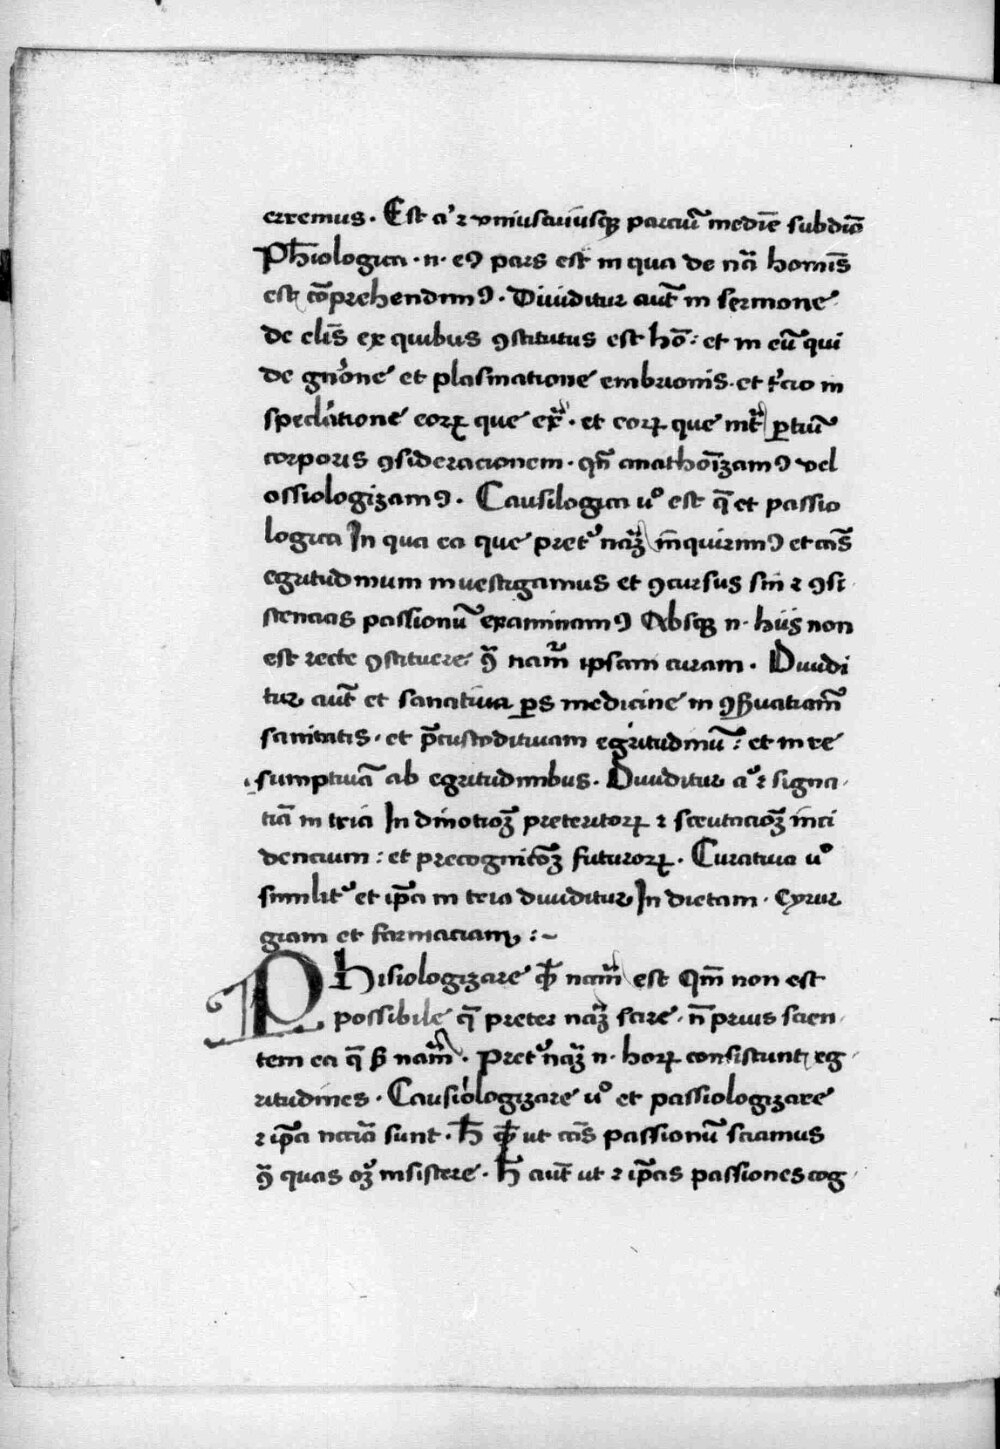 erremus. Est aͥ ⁊ vniuscuiusqꝫ parciū medīe subdiō
Ph̄iologica .n. eꝰ pars est in qua de nā homīs
est cōprehendimꝰ. Diuiditur aut̄ in sermone
de elīs ex quibus ꝯstitutus est hō: et in eū qui
de gnͦone et plasmatione embrionis. et t͛cio in
speclatione eoꝝ que ext̄ᵃ. et eoꝝ que int̄ᵃ ꝑtiū
corporis ꝯsideracionem. qn̄ anathoīzamꝰ vel
ossiologizamꝰ. Causilogica uͦ est q̄ et passio
logica In qua ea que pret͛ nāꝫ inquirimꝰ et cās
egritudinum inuestigamus et ꝯcursus sin ⁊ ꝯsi
stencias passionū examinamꝰ Absqꝫ .n. hiis non
est recte ꝯstituere ꝯᵃ nam̄ ipsam curam. Diuidi
tur aut̄ et sanatiua ꝑs medicine in ꝯẜuatiam̄
sanitatis. et p̄custoditiuam egritudinū: et in re
sumptiuā ab egritudinibus. Diuiditur aͥ ⁊ signa
tiā in tria In dinotioꝫ preteritoꝝ ⁊ scrutacioꝫ inci
dencium: et precognitōꝫ futuroꝝ. Curatiua uͦ
similit͛ et ip̄a in tria diuiditur In dietam. Cyrur
giam et farmaciam :~
Phisiologizare qͥd nam̄ est Qm̄ non est
possibile q̄ preter nāꝫ scire. n̄ prius scien
tem ea q̄ ẜm nam̄. Pret͛ nāꝫ .n. hoꝝ consistunt eg
ritudines. Causiologizare uͦ et passiologizare
⁊ ip̄a nccīa sunt. h̄ qͥd ut cās passionū sciamus
ꝯᵃ quas oꝫ insistere. h̄ aut̄ ut ⁊ ip̄as passiones cog